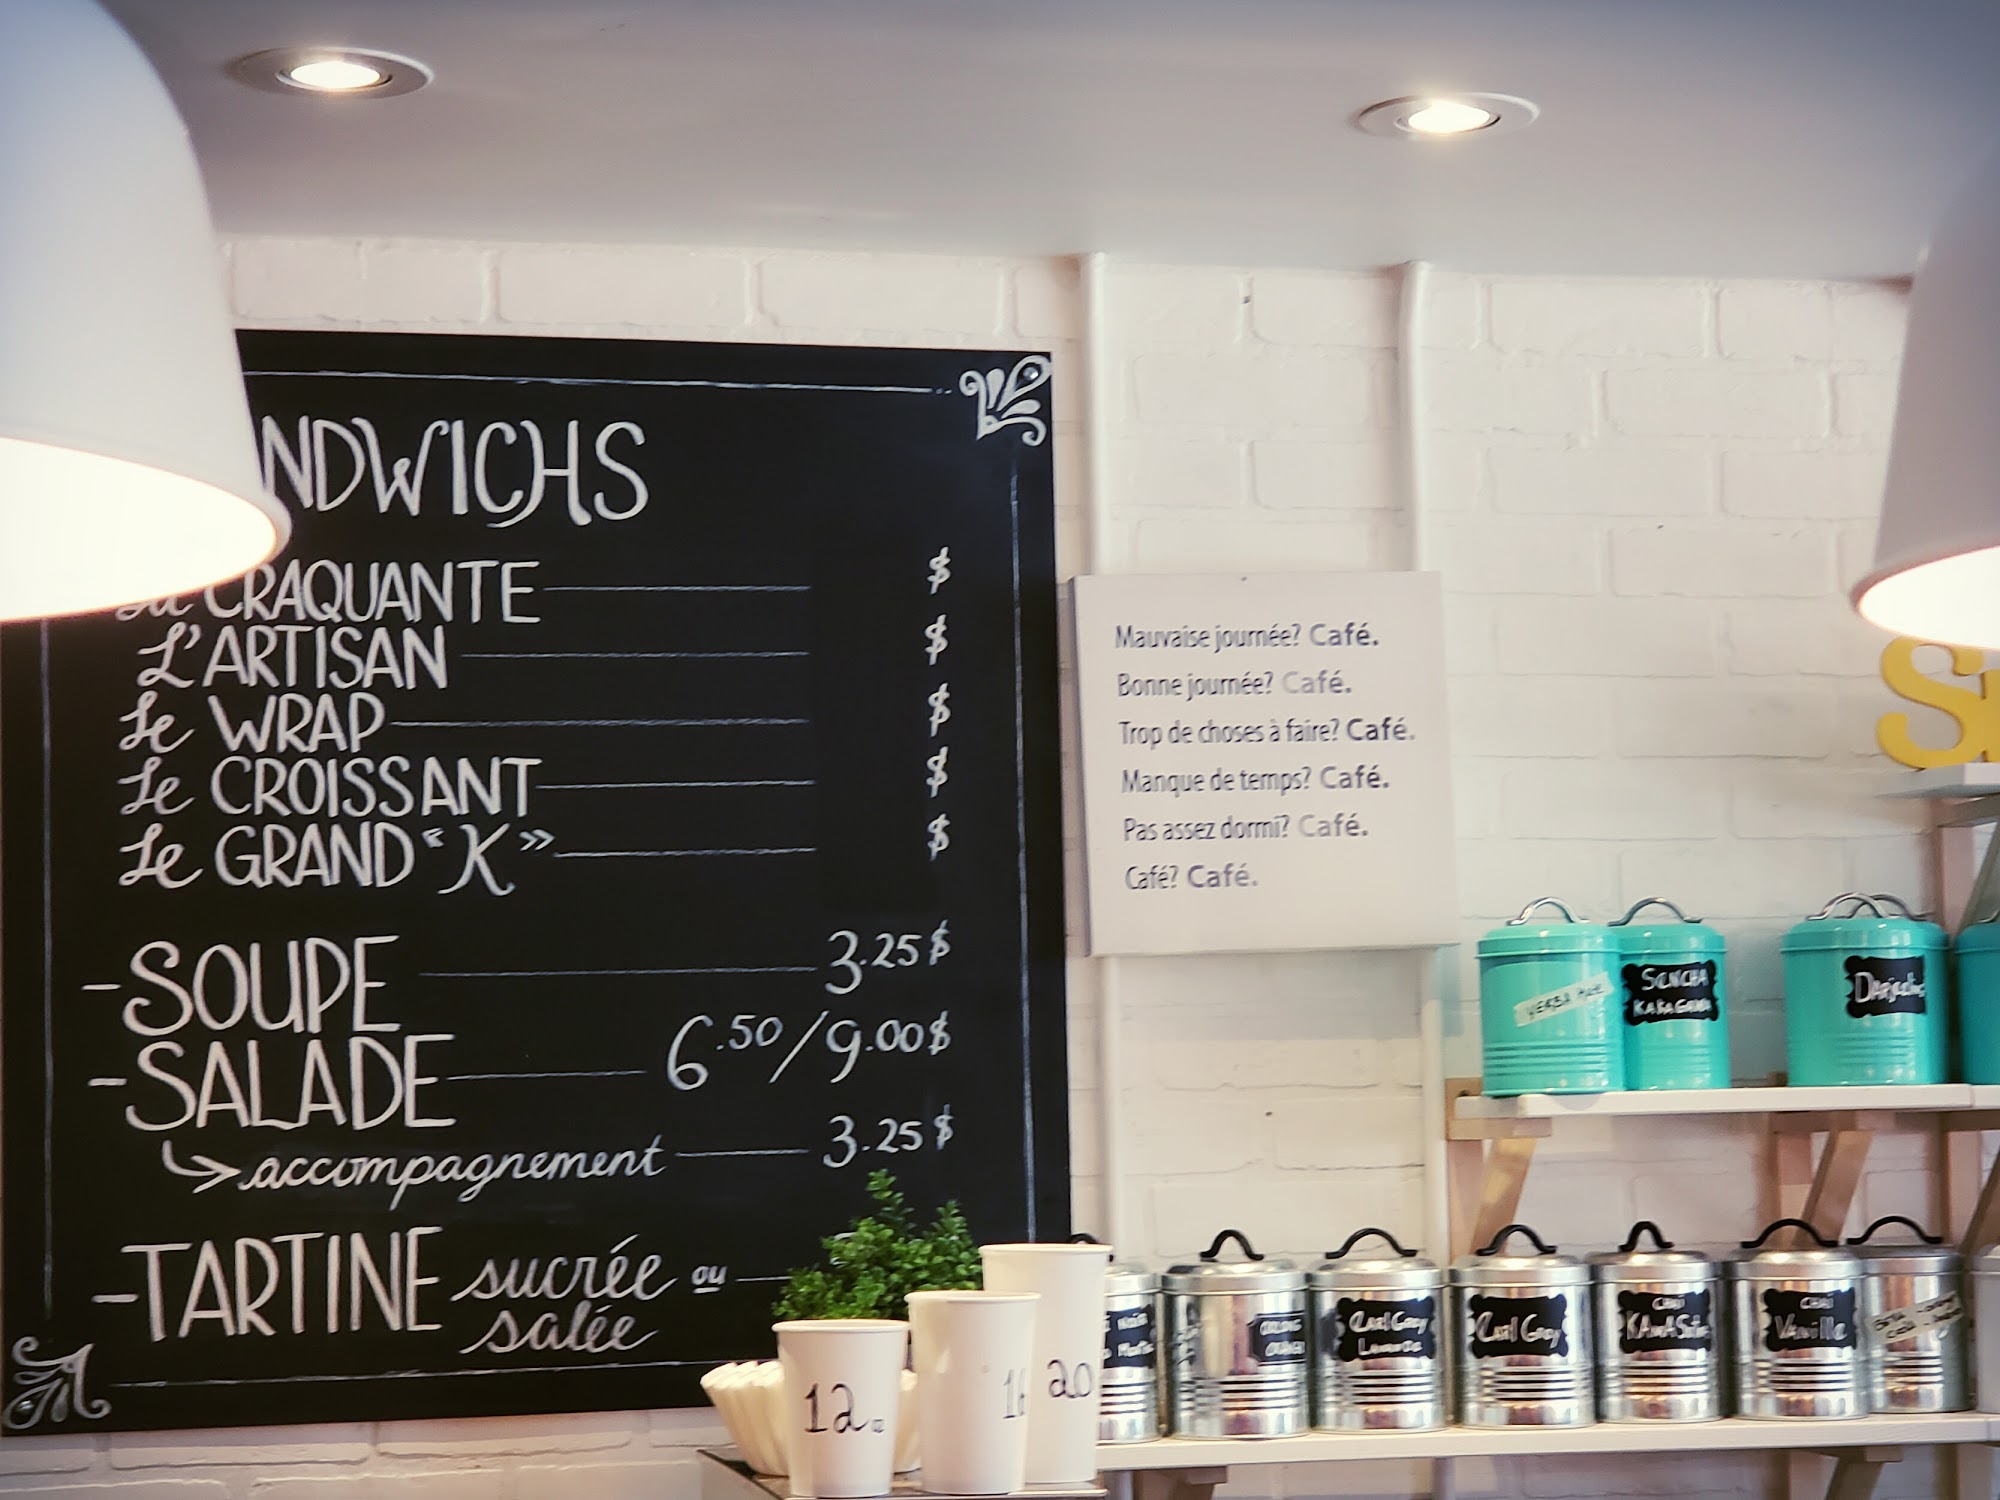 SANDWICHS
La CRAQUANTE $
L'ARTISAN $
Le WRAP $
Le CROISSANT $
Le GRAND "K" $
-SOUPE 3.25$
-SALADE 6.50/9.00$
accompagnement 3.25$
-TARTINE sucrée ou
salée
Mauvaise journée? Café.
Bonne journée? Café.
Trop de choses à faire? Café.
Manque de temps? Café.
Pas assez dormi? Café.
Café? Café.
YERBA
SENCHA
KAKAGAWA
Darjeeling
Earl Grey
Earl Grey
CHAI
CHAI
Vanille
12
16
20